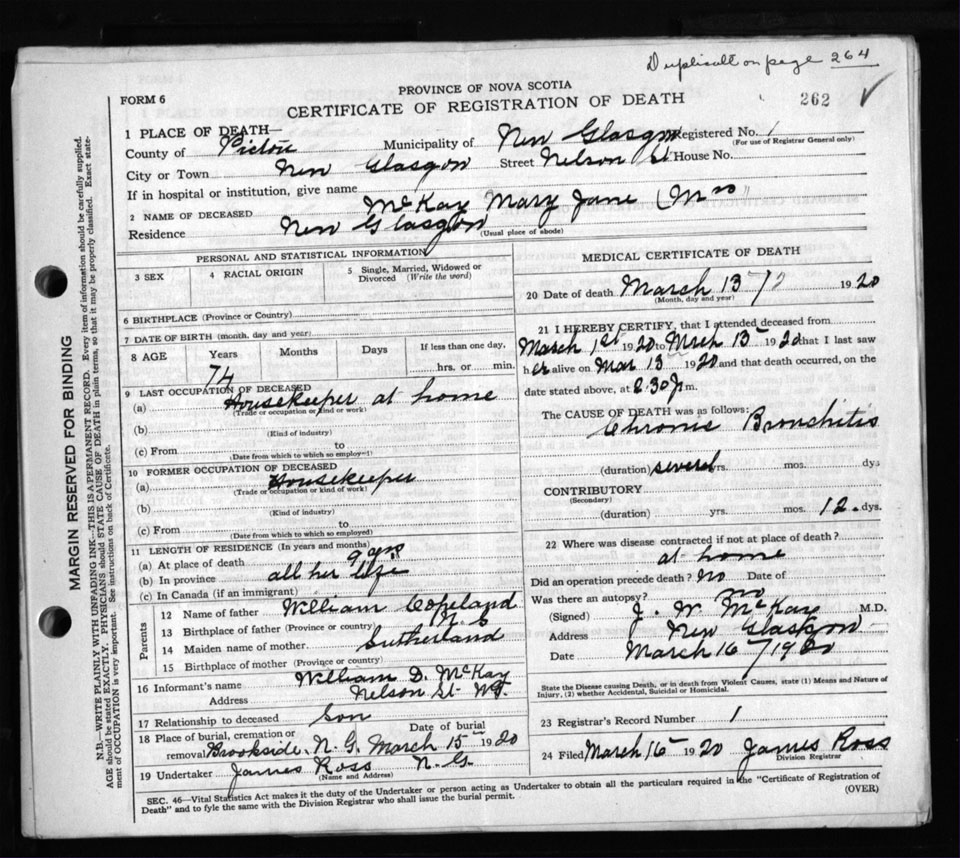 Duplicate on page 264
FORM 6
PROVINCE OF NOVA SCOTIA
CERTIFICATE OF REGISTRATION OF DEATH
262 ✓
1 PLACE OF DEATH—
County of Pictou Municipality of New Glasgow Registered No. 1
(For use of Registrar General only)
City or Town New Glasgow Street Nelson St House No.
If in hospital or institution, give name
2 NAME OF DECEASED McKay Mary Jane (Mrs)
Residence New Glasgow
(Usual place of abode)
PERSONAL AND STATISTICAL INFORMATION
3 SEX
4 RACIAL ORIGIN
5 Single, Married, Widowed or Divorced (Write the word)
6 BIRTHPLACE (Province or Country)
7 DATE OF BIRTH (month, day and year)
8 AGE Years Months Days If less than one day,
74 hrs. or min.
9 LAST OCCUPATION OF DECEASED
(a) Housekeeper at home
(Trade or occupation or kind of work)
(b)
(Kind of industry)
(c) From to
(Date from which to which so employed)
10 FORMER OCCUPATION OF DECEASED
(a) Housekeeper
(Trade or occupation or kind of work)
(b)
(Kind of industry)
(c) From to
(Date from which to which so employed)
11 LENGTH OF RESIDENCE (In years and months)
(a) At place of death 9 yrs
(b) In province all her life
(c) In Canada (if an immigrant)
Parents
12 Name of father William Copeland
13 Birthplace of father (Province or country) N.S
14 Maiden name of mother Sutherland
15 Birthplace of mother (Province or country)
16 Informant's name William D. McKay
Address Nelson St N.G.
17 Relationship to deceased Son
18 Place of burial, cremation or removal Brookside, N.G. Date of burial March 15 1920
19 Undertaker James Ross N.G.
(Name and Address)
MEDICAL CERTIFICATE OF DEATH
20 Date of death March 13 1920
(Month, day and year)
21 I HEREBY CERTIFY, that I attended deceased from
March 1st 1920 to March 13 1920 that I last saw
her alive on Mar 13 1920 and that death occurred, on the
date stated above, at 8.30 p m.
The CAUSE OF DEATH was as follows:
Chronic Bronchitis
(duration) several yrs. mos. dys
CONTRIBUTORY
(Secondary)
(duration) yrs. mos. 12. dys.
22 Where was disease contracted if not at place of death?
at home
Did an operation precede death? No Date of
Was there an autopsy? no
(Signed) J. W. McKay M.D.
Address New Glasgow
Date March 16 / 1920
State the Disease causing Death, or in death from Violent Causes, state (1) Means and Nature of
Injury, (2) whether Accidental, Suicidal or Homicidal.
23 Registrar's Record Number 1
24 Filed March 16 1920 James Ross
Division Registrar
SEC. 46—Vital Statistics Act makes it the duty of the Undertaker or person acting as Undertaker to obtain all the particulars required in the "Certificate of Registration of
Death" and to fyle the same with the Division Registrar who shall issue the burial permit.
(OVER)
MARGIN RESERVED FOR BINDING
N.B.—WRITE PLAINLY WITH UNFADING INK—THIS IS A PERMANENT RECORD. Every item of information should be carefully supplied.
AGE should be stated EXACTLY. PHYSICIANS should STATE CAUSE OF DEATH in plain terms, so that it may be properly classified. Exact state-
ment of OCCUPATION is very important. See instructions on back of Certificate.